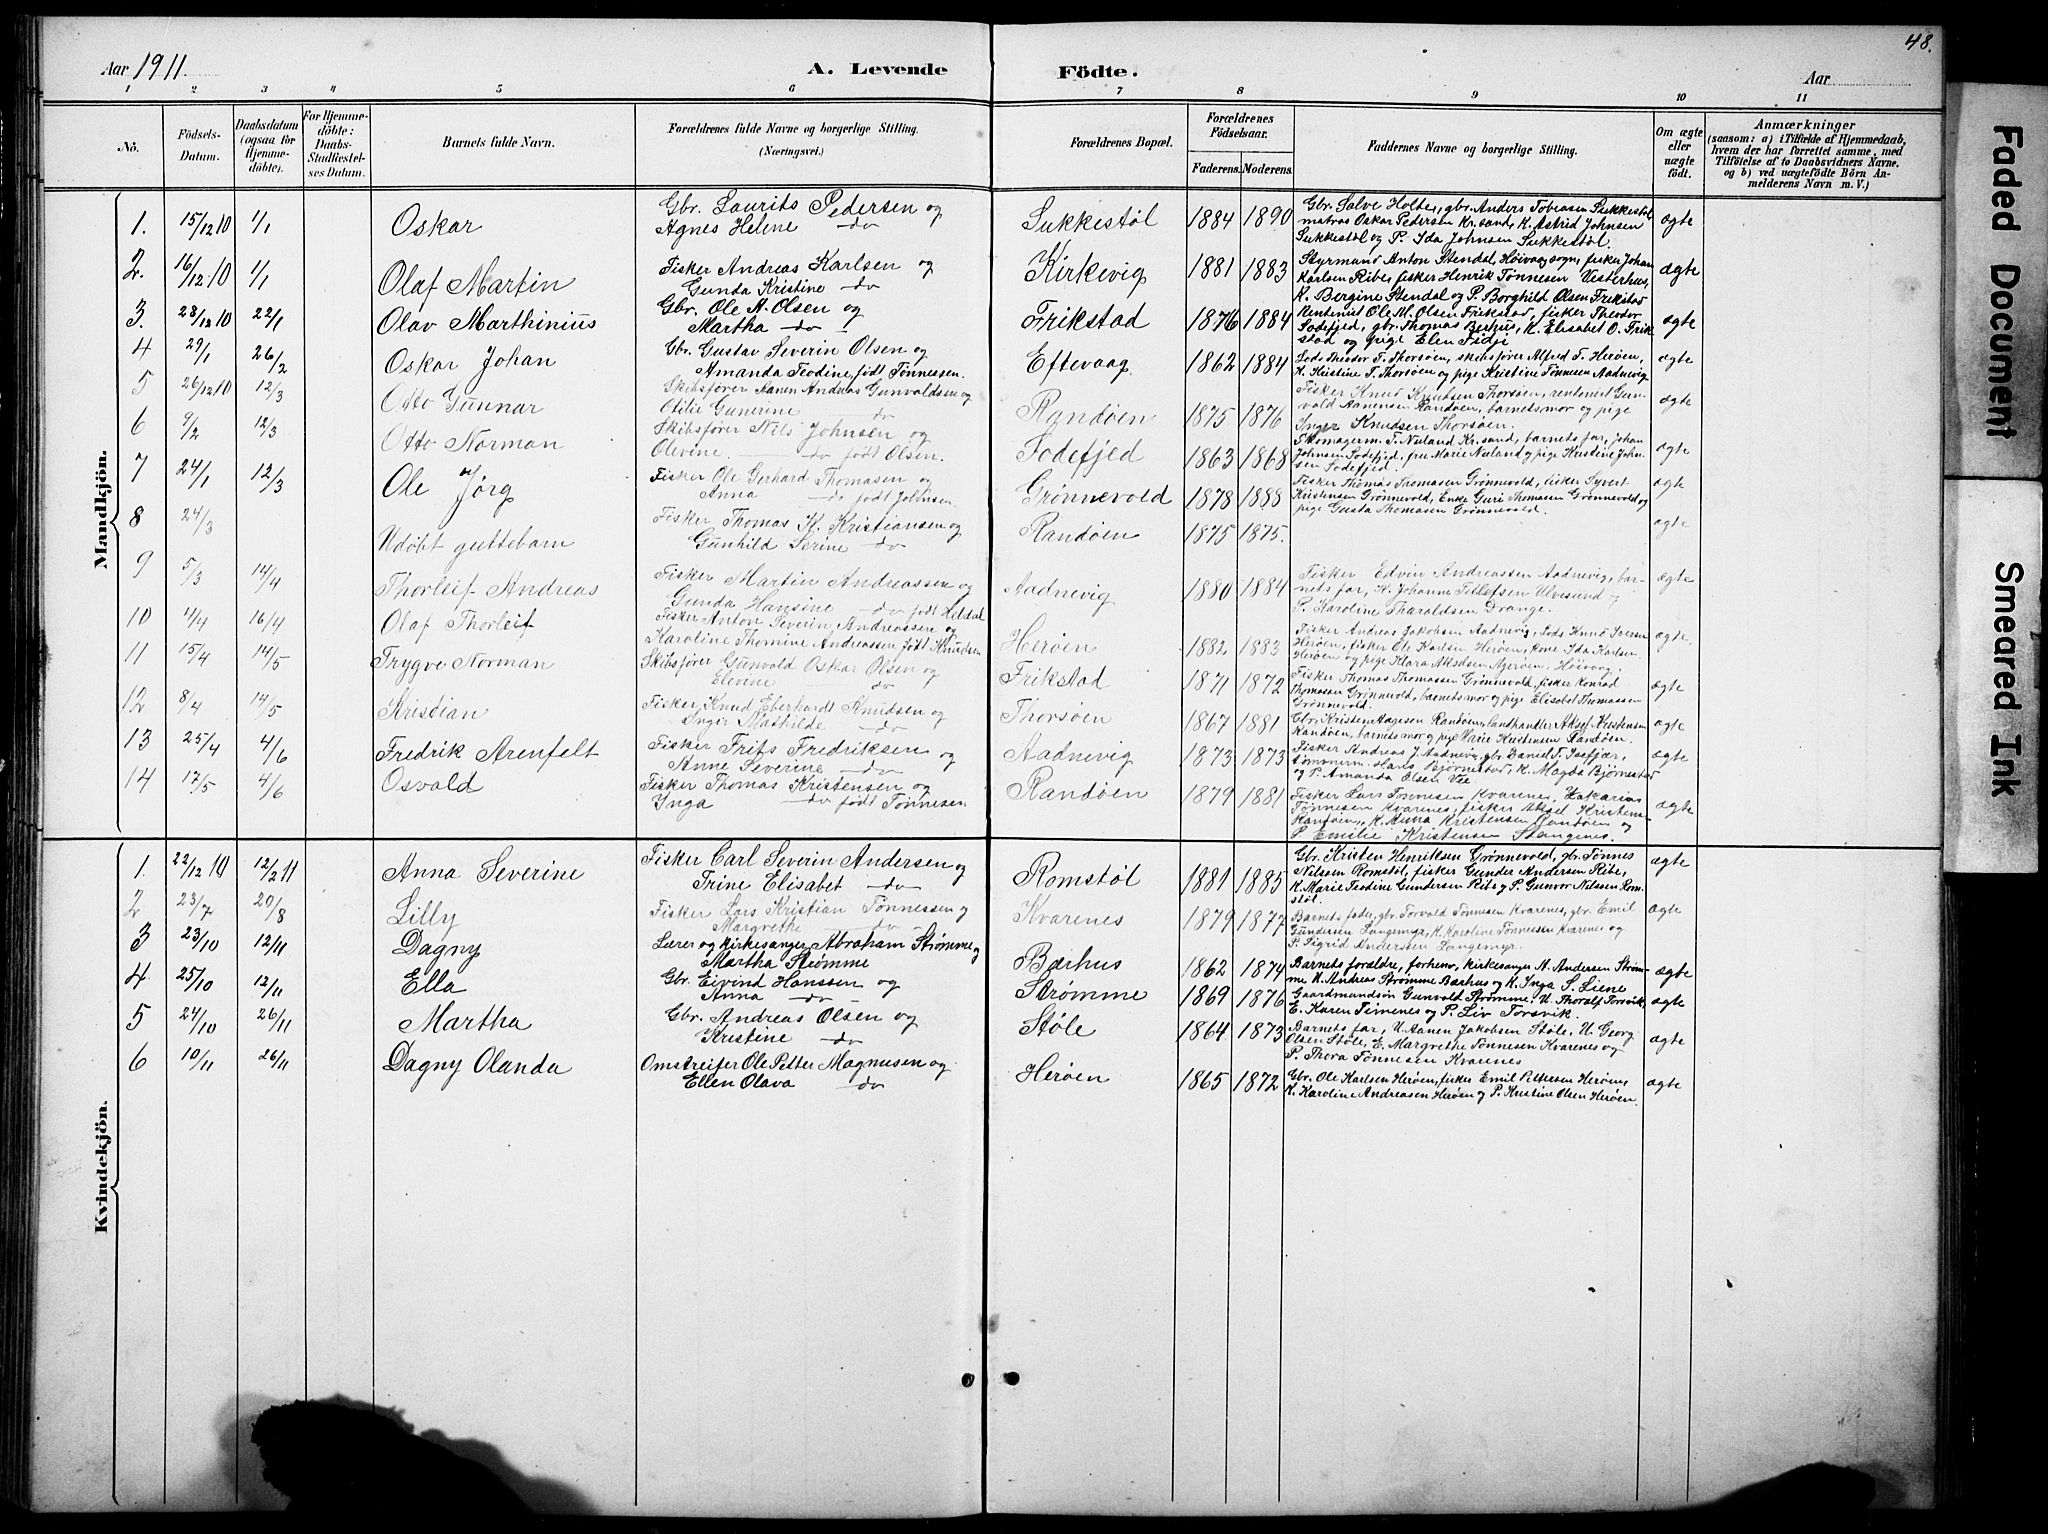 48.
Aar 1911.
A. Levende Födte.
Aar
1 2 3 4 5 6 7 8 9 10 11
Nō.
Födsels-Datum.
Daabsdatum (ogsaa for Hjemme-döbte).
For Hjemme-döbte: Daabs-Stadfæstel-ses Datum.
Barnets fulde Navn.
Forældrenes fulde Navne og borgerlige Stilling. (Næringsvei.)
Forældrenes Bopæl.
Forældrenes Födselsaar.
Faderens. Moderens.
Faddernes Navne og borgerlige Stilling.
Om ægte eller nægte födt.
Anmærkninger
(saasom: a) i Tilfælde af Hjemmedaab, hvem der har forrettet samme, med Tilföielse af to Daabsvidners Navne. og b) ved uægtefödte Börn An-melderens Navn m. V.)
Mandkjön.
1. 15/12 10 1/1 Oskar Gbr. Laurits Pedersen og Agnes Helene do Sukkestøl 1884 1890 Gbr. Salve Holte, gbr. Anders Tobiasen Sukkestøl matros Oskar Pedersen Kr.sand, K. Astrid Johnsen Sukkestøl og P. Ida Johnsen Sukkestøl. ægte
2. 16/12 10 1/1 Olaf Martin Fisker Andreas Karlsen og Gunda Kristine do Kirkevig 1881 1883 Styrmand Anton Stendal, Höivaag sogn, fisker Johan Karlsen Ribe, fisker Henrik Tønnesen Vesterhus, K. Bergine Stendal og P. Borghild Olsen Frikstad ægte
3. 28/12 10 22/1 Olav Marthinius Gbr. Ole A. Olsen og Martha do Frikstad 1876 1884 Rentenist Ole M. Olsen Frikstad, fisker Theodor Sodefjed, gbr. Thomas Berhus, K. Elisabet O. Frikstad og pige Elen Fidje ægte
4 29/1 26/2 Oskar Johan Gbr. Gustav Severin Olsen og Amanda Teodine, født Tønnessen. Eftevaag 1862 1884 Lods Theodor T. Thorsøen, skibsfører Alfred T. Herøen, K. Kistine T. Thorsøen og pige Kristine Tønnesen Aadnevig ægte
5 26/12 10 12/3 Otto Gunnar Skibsfører Aanen Andreas Gunvaldsen og Otilie Gunerine do Randøen 1875 1876 Fisker Knud Knudsen Thorsøen, rentenist Gunvald Aanensen Randøen, barnets mor og pige Inger Knudsen Thorsøen. ægte
6 9/2 12/3 Otto Norman Skibsfører Nils Johnsen og Olevine do født Olsen. Sodefjed 1863 1868 Skomagerm. T. Nuland Kr.sand, barnets far, Johan Johnsen Sodefjed, fru Marie Nuland og pige Kristine Johnsen Sodefjed. ægte
7 24/1 12/3 Ole Jørg Fisker Ole Gerhard Thomasen og Anna do født Johnsen. Grønnevold 1878 1888 Fisker Thomas Thomasen Grønnevold, fisker Syvert Kristensen Grønnevold, Enke Guri Thomasen Grønnevold og pige Gusta Thomasen Grønnevold. ægte
8 24/3 Udøbt guttebarn Fisker Thomas K. Kristiansen og Gunhild Serine do Randøen 1875 1875. ægte
9 5/3 14/4 Thorleif Andreas Fisker Martin Andreassen og Gunda Hansine do født Heldal Aadnevig 1880 1884 Fisker Edvin Andreassen Aadnevig, barnets far, K. Johanne Ulvesund og P. Karoline Tharaldsen Drange. ægte
10 4/4 16/4 Olaf Thorleif Fisker Anton Severin Andreassen og Karoline Thomine Andreassen født Knudsen Herøen 1882 1883 Fisker Andreas Jakobsen Aadnevig, Lods Knud Iversen Herøen, fisker Ole Karlsen Herøen, kone Ida Karlsen Herøen og pige Klara Akselsen Agerøen, Höivaag. ægte.
11 15/4 14/5 Trygve Norman Skibsfører Gunvald Oskar Olsen og Elevine do Frikstad 1871 1872 Fisker Thomas Thomassen Grønnevold, fisker Konrad Thomasen Grønnevold, barnets mor og pige Elisabet Thomassen Grønnevold. ægte
12 8/4 14/5 Kristian Fisker Knud Eberhardt Knudsen og Inger Mathilde do Thorsøen 1867 1881 Gbr. Kristen Aagesen Randøen, landhandler Aksel Kristensen Randøen, barnets mor og pige Marie Kristensen Randøen. ægte
13 25/4 4/6 Fredrik Arenfelt Fisker Frits Fredriksen og Anne Severine do Aadnevig 1873 1873 Fisker Andreas J. Aadnevig, gbr. Daniel T. Isefjær, tømmerm. Hans Bjørnestad, K. Magda Bjørnestad og P. Amanda Olsen Vee. ægte
14 17/5 4/6 Osvald Fisker Thomas Kristensen og Ynga do født Tønnesen Randøen 1879 1881 Fisker Lars Tønnesen Kvarenes, Zakarias Tønnesen Kvarenes, fisker Aksel Kristensen Randøen, K. Anna Kristensen Randøen og P. Emilie Kristensen Stangenes. ægte
Kvindekjön.
1. 22/12 10 12/2 11 Anna Severine Fisker Carl Severin Andersen og Trine Elisabet do Romstøl 1881 1885 Gbr. Kristen Henriksen Grønnevold, gbr. Tønnes Nilsen Romstøl, fisker Gunder Andersen Ribe, K. Marie Teodine Gundersen Ribe og P. Gunvor Nilssen Romstøl. ægte
2 23/7 20/8 Lilly Fisker Lars Kristian Tønnessen og Margrethe do Kvarenes 1879 1877 Barnets fader, gbr. Torvald Tønnesen Kvarenes, gbr. Emil Gundersen Langemyr, K. Karoline Tønnessen Kvarenes og P. Sigrid Anderssen Langemyr. ægte
3 23/10 12/11 Dagny Lærer og Kirkesanger Abraham Strømme og Martha Strømme Bærhus 1862 1874 Barnets forældre, forhenv. kirkesanger A. Andersen Strømme U. Andreas Strømme Bærhus og K. Inga S. Liene ægte
4 25/10 12/11 Ella Gbr. Eivind Hanssen og Anna do Strømme 1869 1876 Gaardmandsøn Gunvald Strømme, U. Thoralf Torsvik, E. Karen Timenes og P. Liv Torsvik. ægte
5 24/10 26/11 Martha Gbr. Andreas Olsen og Kristine do Støle 1864 1873 Barnets far, U. Aanen Jakobsen Støle, U. Georg Olsen Støle, E. Margrethe Tønnesen Kvarenes og P. Thora Tønnesen Kvarenes ægte
6 10/11 26/11 Dagny Olanda Omstreifer Ole Petter Magnusen og Ellen Olava do Herøen 1865 1872 Gbr. Ole Karlsen Herøen, fisker Emil Pettersen Herøen, K. Karoline Andreasen Herøen og P. Kristine Olsen Herøen. ægte
Faded Document
Smeared Ink